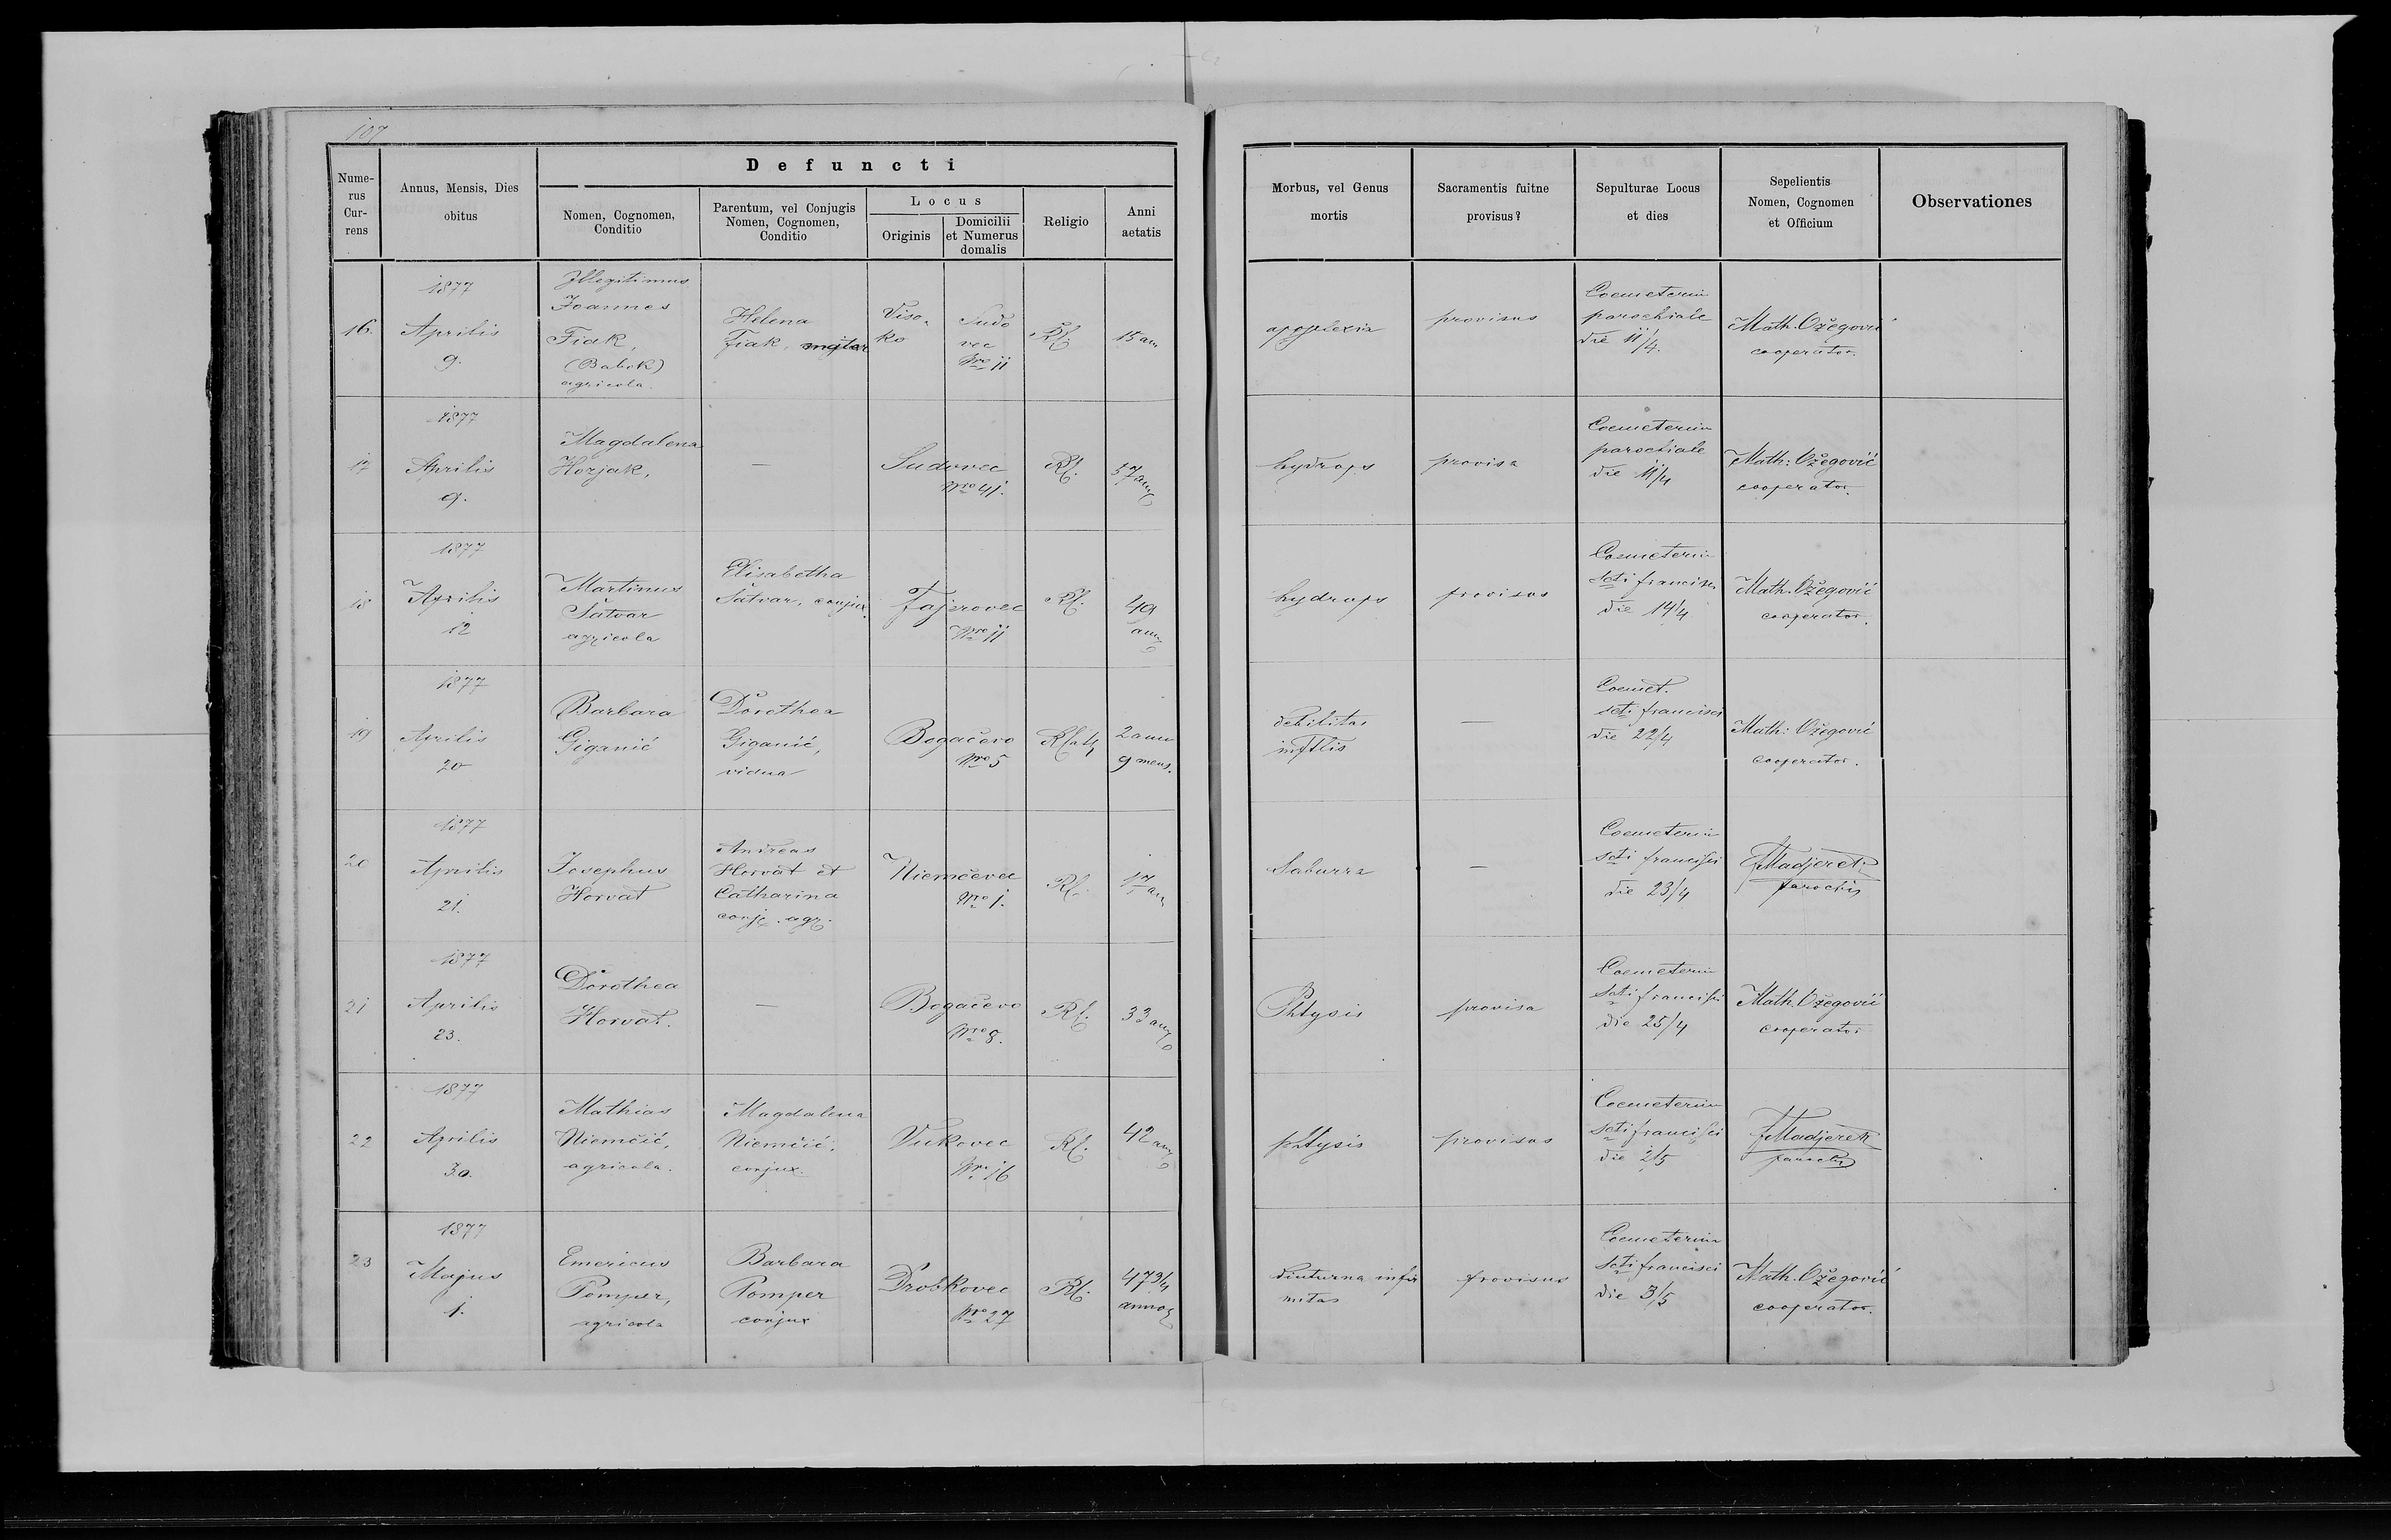 107
Defuncti
Nume-
rus
Cur-
rens
Annus, Mensis, Dies
obitus
Nomen, Cognomen,
Conditio
Parentum, vel Conjugis
Nomen, Cognomen,
Conditio
Locus
Originis
Domicilii
et Numerus
domalis
Religio
Anni
aetatis
Morbus, vel Genus
mortis
Sacramentis fuitne
provisus?
Sepulturae Locus
et dies
Sepelientis
Nomen, Cognomen
et Officium
Observationes
16.
1877
Aprilis
9.
Illegitimus
Joannes
Fiak,
(Babok)
agricola.
Helena
Fiak,
Viso-
ko
Sudo
vec
Nro 11
Rk.
15 an
apoplexia
provisus
Coemeterium
parochiale
die 11/4.
Math. Ožegović
cooperator.
17
1877
Aprilis
9.
Magdalena
Horjak,
—
Sudovec
Nro 41.
Rk.
57 ann
hydrops
provisa
Coemeterium
parochiale
die 11/4
Math: Ožegović
cooperator.
18
1877
Aprilis
12
Martinus
Šatvar
agricola
Elisabetha
Šatvar, conjux.
Fajerovec
Nro 11
Rk.
49
ann
hydrops
provisus
Coemeterium
scti francisci
die 14/4
Math. Ožegović
cooperator.
19
1877
Aprilis
20
Barbara
Giganić
Dorothea
Giganić,
vidua
Bogačevo
Nro 5
Rkath
2 ann
9 mens.
debilitas
inftlis
—
Coemet.
scti francisci
die 22/4
Math: Ožegović
cooperator.
20
1877
Aprilis
21.
Josephus
Horvat
Andreas
Horvat et
Catharina
conj. agr.
Niemčevec
Nro 1.
Rk.
Saburra
—
Coemeterium
scti francisci
die 23/4
FMadjerek
parochus
21
1877
Aprilis
23.
Dorothea
Horvat.
—
Bogačevo
Nro 8.
Rk.
33 ann
Phtysis
provisa
Coemeterium
scti francisci
die 25/4
Math. Ožegović
cooperator
22
1877
Aprilis
30.
Mathias
Niemčić,
agricola.
Magdalena
Niemčić,
conjux.
Vukovec
Nro 16
Rk.
42 ann
phtysis
provisus
Coemeterium
scti francisci
die 2/5
FMadjerek
parochus
23
1877
Majus
1.
Emericus
Pomper,
agricola
Barbara
Pomper
conjux
Drobkovec
Nro 27
Rk.
47 3/4
annor
diuturna infir
mitas
provisus
Coemeterium
scti francisci
die 3/5
Math. Ožegović
cooperator.